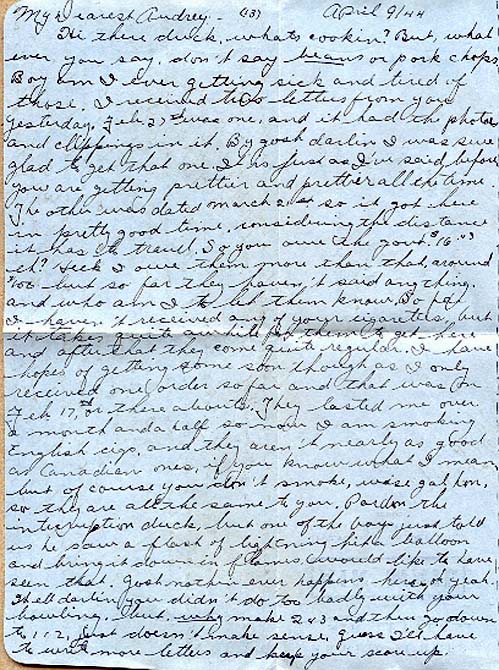 My Dearest Audrey - (13) April 9/44
Hi there duck, whats cookin? But, what
ever you say, don't say beans or pork chops,
Boy am I ever getting sick and tired of
those. I received two letters from you
yesterday. Feb. 27th was one, and it had the photos
and clippings in it. By gosh darlin I was sure
glad to get that one. It is just as I've said before
you are getting prettier and prettier all the time.
The other was dated March 24 so it got here
in pretty good time, considering the distance
it has to travel. So you owe the govt. $16.
eh? Heck I owe them more than that, around
$100 but so far they haven't said anything.
and who am I to let them know. So far
I haven't received any of your cigarettes, but
it takes quite awhile for them to get here
and after that they come quite regular. I have
hopes of getting some soon though as I only
received one order so far and that was on
Feb 17th or there abouts. They lasted me over
a month and a half so now I am smoking
English cigs, and they aren't nearly as good
as Canadian ones, if you know what I mean
but of course you don't smoke, wise gal hon,
so they are all the same to you. Pardon the
interuption duck, but one of the boys just told
us he saw a flash of lightning hit a balloon
and bring it down in flames, would like to have
seen that. Gosh nothin ever happens here, oh yeah.
Well darlin you didn't do too badly with your
bowling. But, why make 243 and then go down
to 112, just doesn't make sense. Guess I'll have
to write more letters and keep your score up.